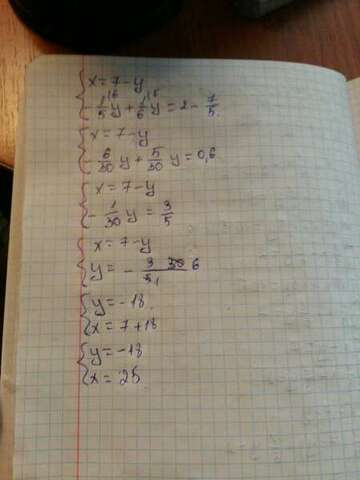 x = 7 - y
- 1/5 \6 y + 1/6 \5 y = 2 - 7/5
x = 7 - y
- 6/30 y + 5/30 y = 0,6
x = 7 - y
- 1/30 y = 3/5
x = 7 - y
y = - 3 30 6 / 5 1
y = - 18
x = 7 + 18
y = - 18
x = 25